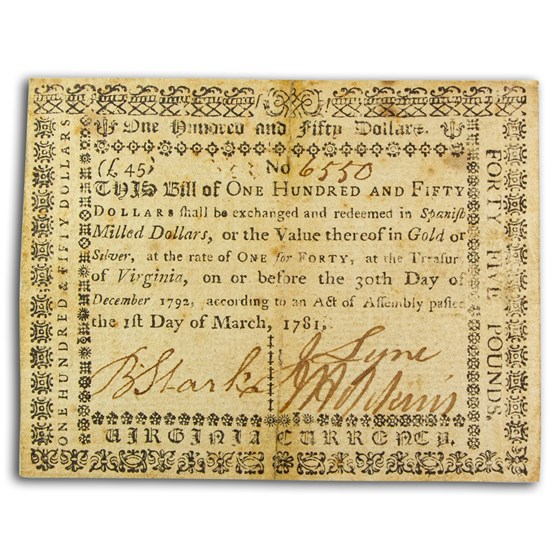 One Hundred and Fifty Dollars.
(£ 45) No 6550
THIS Bill of ONE HUNDRED AND FIFTY
DOLLARS shall be exchanged and redeemed in Spanish
Milled Dollars, or the Value thereof in Gold or
Silver, at the rate of ONE for FORTY, at the Treasur
of Virginia, on or before the 30th Day of
December 1792, according to an Act of Assembly passed
the 1st Day of March, 1781.
B Stark J Lyne
J Hopkins
VIRGINIA CURRENCY.
ONE HUNDRED & FIFTY DOLLARS
FORTY FIVE POUNDS.